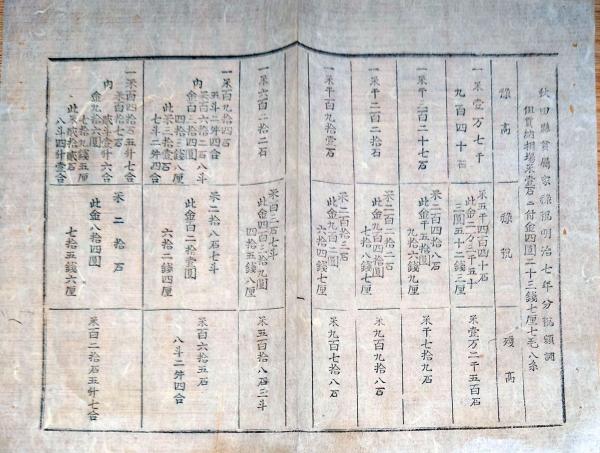 秋田縣貫屬家祿税明治七年分税額調
但貢納相場米壹石ニ付金四圓二十三錢七厘七毛八糸
祿高
祿税
殘高
一米壹万七千
九百四十石
米五千四百四十石
此金二万三千五十
三圓五十二錢三厘
米壹万二千五百石
一米千二百二十七石
米二百四拾八石
此金千五拾圓
九拾六錢九厘
米九百七拾九石
一米千二百二石
此金九百四拾圓
七拾八錢七厘
米九百八拾石
一米千百九拾壹石
米二百拾三石
此金九百二圓
六拾四錢七厘
米九百七拾八石
一米六百二拾二石
米百三石七斗
此金四百三拾九圓
四拾五錢八厘
米五百拾八石三斗
一米百九拾四石
五斗二舛四合
内
米百六拾二石八斗
金百三圓
四拾三錢一厘
七斗二舛四合
米二拾八石七斗
此金百二拾壹圓
六拾二錢四厘
米百六拾五石
八斗二舛四合
一米百四拾石五舛七合
内
米百拾七石
金九拾六圓
米二拾石
此金八拾四圓
七拾五錢六厘
米百二拾石五舛七合